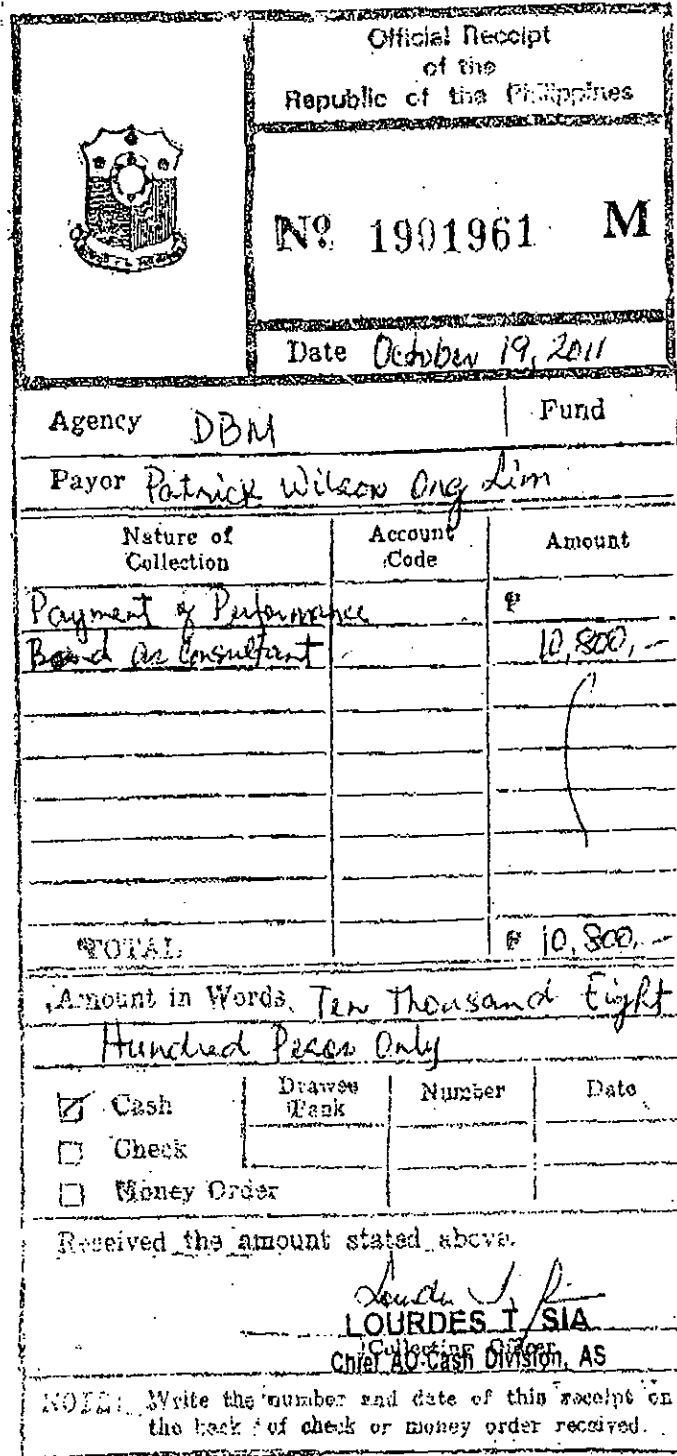 Official Receipt
of the
Republic of the Philippines
Nº 1901961 M
Date October 19, 2011
Agency DBM Fund
Payor Patrick Wilson Ong Lim
Nature of Collection Account Code Amount
Payment of Performance ₱
Bond as Consultant 10,800,-
TOTAL ₱ 10,800,-
Amount in Words Ten Thousand Eight
Hundred Pesos Only
Cash Drawee Bank Number Date
Check
Money Order
Received the amount stated above.
LOURDES T. SIA
Collecting Officer
Chief AO-Cash Division, AS
NOTE: Write the number and date of this receipt on
the back of check or money order received.